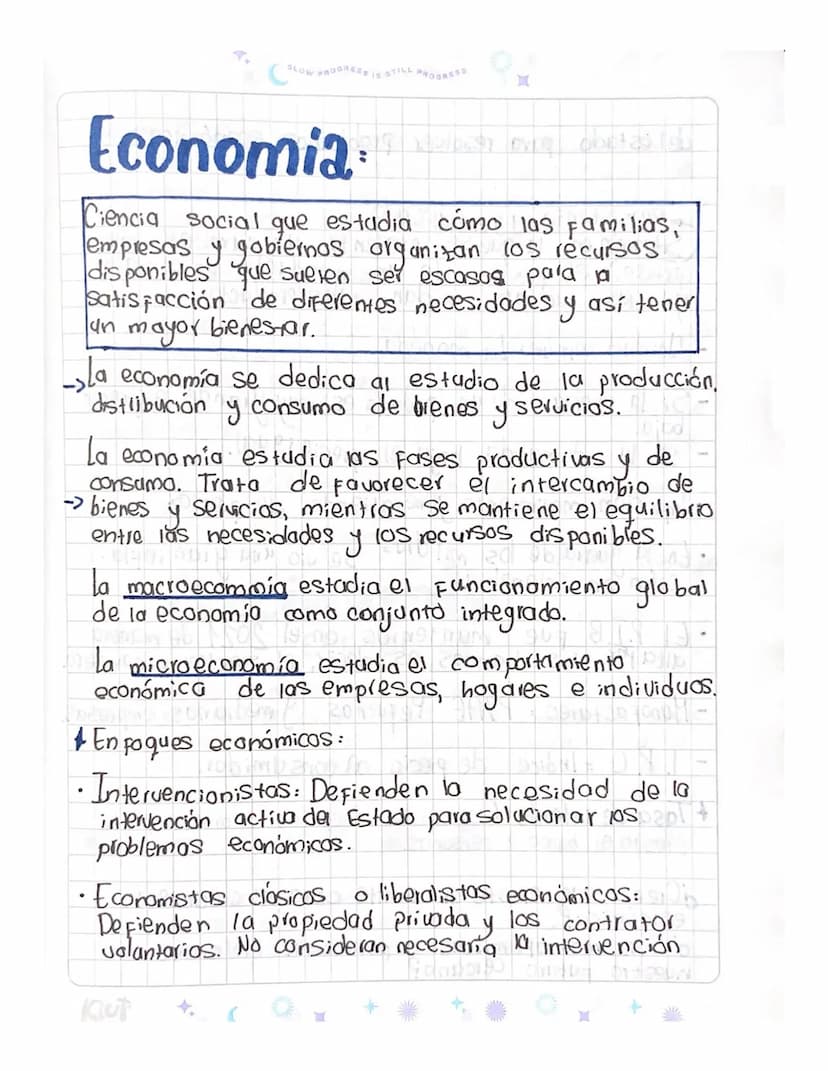 SLOW PROGRESS IS STILL PROGRESS
Economía:
Ciencia social que estudia cómo las familias,
empresas y gobiernos organizan los recursos
disponibles que suelen ser escasos para la
satisfacción de diferentes necesidades y así tener
un mayor bienestar.
→La economía se dedica al estudio de la producción,
distribución y consumo de bienes y servicios.
La economía estudia las fases productivas y de
consumo. Trata de favorecer el intercambio de
→ bienes y servicios, mientras se mantiene el equilibrio
entre las necesidades y los recursos disponibles.
La macroeconomía estudia el funcionamiento global
de la economía como conjunto integrado.
La microeconomía estudia el comportamiento
económico de las empresas, hogares e individuos.
Enfoques económicos:
• Intervencionistas: Defienden la necesidad de la
intervención activa del Estado para solucionar los
problemas económicos.
• Economistas clásicos o liberalistas económicos:
Defienden la propiedad privada y los contrator
voluntarios. No consideran necesaria la intervención
Kiut